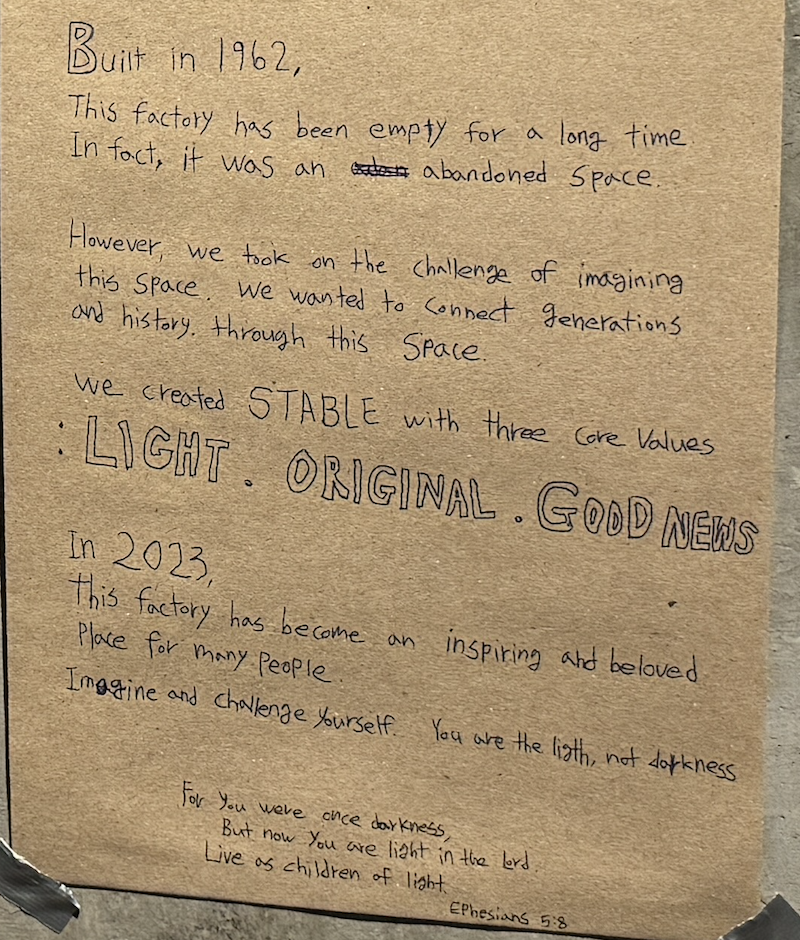 Built in 1962,
This factory has been empty for a long time.
In fact, it was an abandoned space.
However, we took on the challenge of imagining
this space. We wanted to connect generations
and history. through this space.
we created STABLE with three core values
: LIGHT . ORIGINAL . GOOD NEWS
In 2023,
This factory has become an inspiring and beloved
Place for many people.
Imagine and challenge yourself. You are the ligth, not darkness
For you were once darkness,
But now you are light in the Lord.
Live as children of light.
Ephesians 5:8